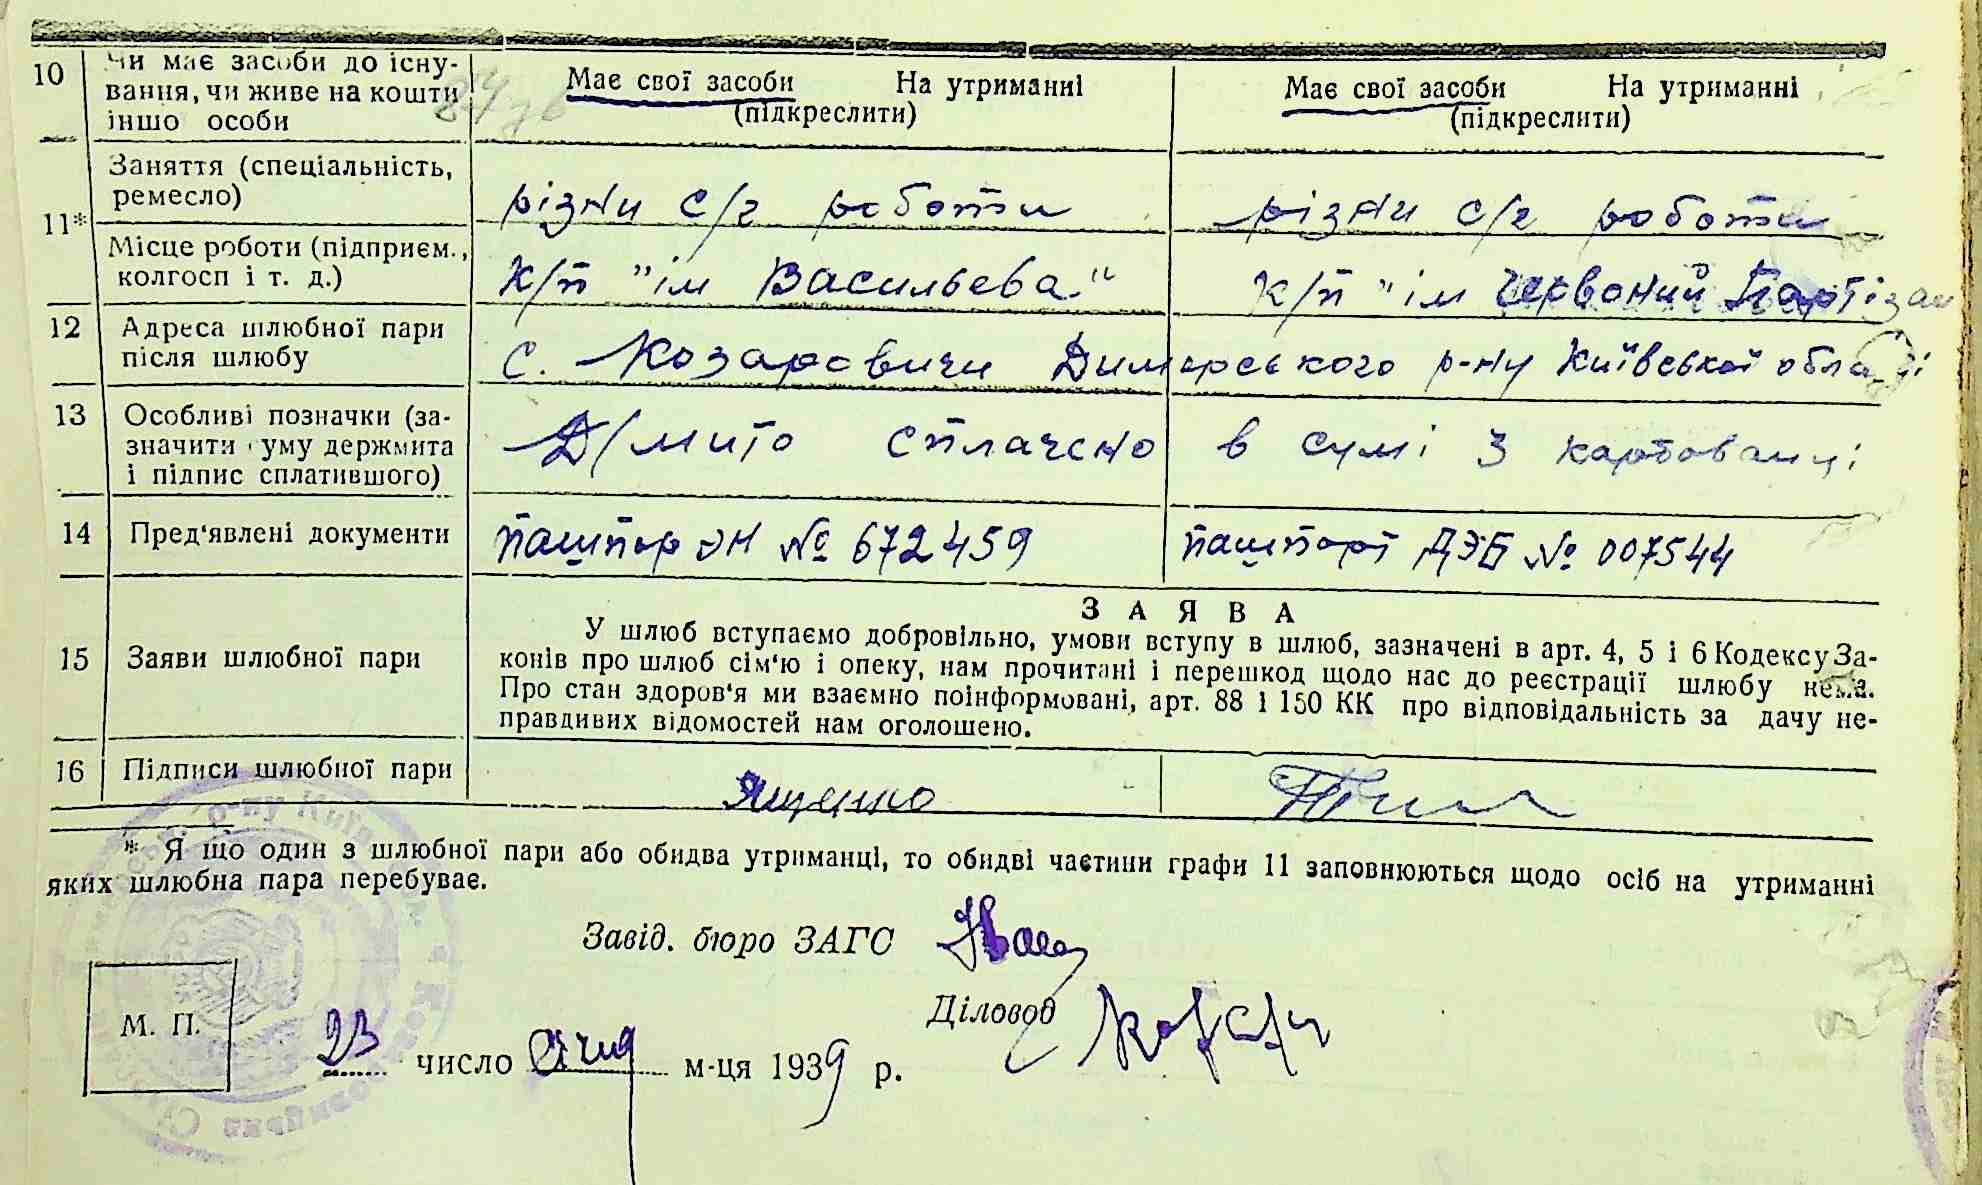 10 Чи має засоби до існу-
вання, чи живе на кошти
іншо особи
Має свої засоби На утриманні
(підкреслити)
Має свої засоби На утриманні
(підкреслити)
11*
Заняття (спеціальність,
ремесло)
різни с/г роботи
різни с/г роботи
Місце роботи (підприєм.,
колгосп і т. д.)
К/п "ім Васильєва."
К/п "ім Червоний Партізан
12 Адреса шлюбної пари
після шлюбу
с. Козаровичи Димерського р-ну Київської області
13 Особливі позначки (за-
значити суму держмита
і підпис сплатившого)
Д/мито сплачено в сумі 3 карбованці
14 Пред'явлені документи
пашпор ЭН № 672459
пашпорт ДЭБ № 007544
15 Заяви шлюбної пари
ЗАЯВА
У шлюб вступаємо добровільно, умови вступу в шлюб, зазначені в арт. 4, 5 і 6 Кодексу За-
конів про шлюб сім'ю і опеку, нам прочитані і перешкод щодо нас до реєстрації шлюбу нема.
Про стан здоров'я ми взаємно поінформовані, арт. 88 і 150 КК про відповідальність за дачу не-
правдивих відомостей нам оголошено.
16 Підписи шлюбної пари
Ященко
* Я що один з шлюбної пари або обидва утриманці, то обидві частини графи 11 заповнюються щодо осіб на утриманні
яких шлюбна пара перебуває.
Завід. бюро ЗАГС
Діловод
М. П.
23 число м-ця 1939 р.